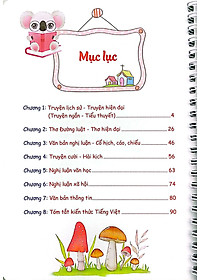 Mục lục
Chương 1: Truyện lịch sử - Truyện hiện đại
(Truyện ngắn - Tiểu thuyết) 4
Chương 2: Thơ Đường luật - Thơ hiện đại 26
Chương 3: Văn bản nghị luận - Cổ hịch, cáo, chiếu 46
Chương 4: Truyện cười - Hài kịch 56
Chương 5: Nghị luận văn học 63
Chương 6: Nghị luận xã hội 74
Chương 7: Văn bản thông tin 80
Chương 8: Tóm tắt kiến thức Tiếng Việt 90